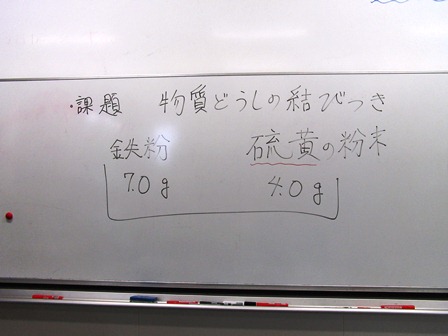 ・課題 物質どうしの結びつき
鉄粉 硫黄の粉末
7.0g 4.0g